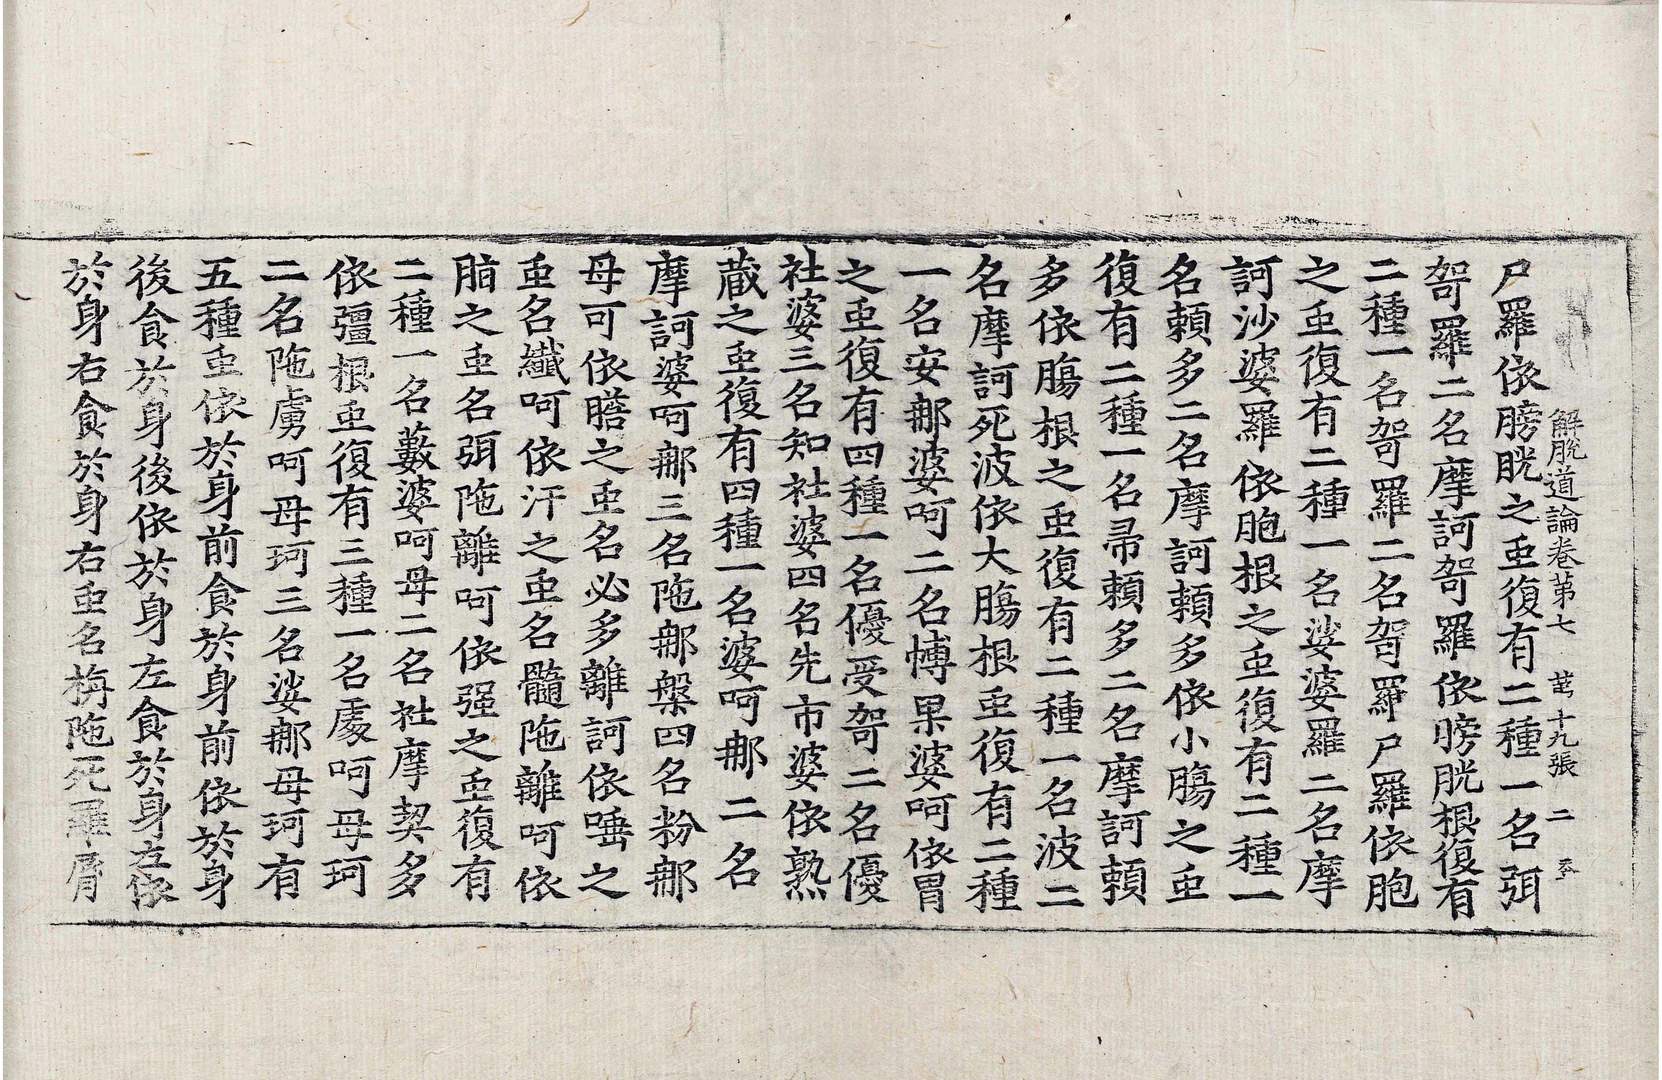 解脫道論卷苐七　苐十九張　二
尸羅依膀胱之䖝復有二種一名弭
哿羅二名摩訶哿羅依膀胱根復有
二種一名哿羅二名哿羅尸羅依胞
之䖝復有二種一名娑婆羅二名摩
訶沙婆羅依胞根之䖝復有二種一
名賴多二名摩訶賴多依小腸之䖝
復有二種一名帚賴多二名摩訶賴
多依腸根之䖝復有二種一名波二
名摩訶死波依大腸根䖝復有二種
一名安那婆呵二名愽果婆呵依胃
之䖝復有四種一名優受哿二名優
社婆三名知社婆四名先市婆依熟
蔵之䖝復有四種一名婆呵那二名
摩訶婆呵那三名陁那槃四名粉那
母可依膽之䖝名必多離訶依唾之
䖝名纖呵依汗之䖝名髓陁離呵依
脂之䖝名弭陁離呵依强之䖝復有
二種一名藪婆呵母二名社摩契多
依彊根䖝復有三種一名處呵母珂
二名陁虜呵母珂三名娑那母珂有
五種䖝依於身前食於身前依於身
後食於身後依於身左食於身左依
於身右食於身右䖝名栴陁死羅脣